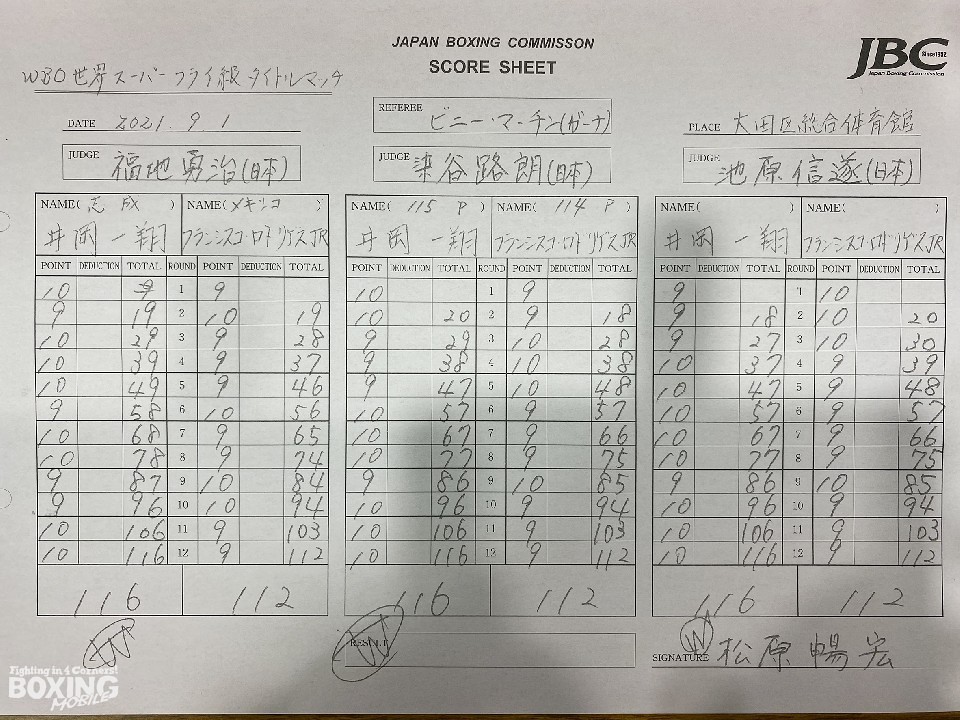 JAPAN BOXING COMMISSON
SCORE SHEET
JBC
Since1952
Japan Boxing Commission
WBO世界スーパーフライ級タイトルマッチ
DATE 2021.9.1
REFEREE ビニー・マーチン(ガーナ)
PLACE 大田区総合体育館
JUDGE 福地勇治(日本)
JUDGE 染谷路朗(日本)
JUDGE 池原信遂(日本)
NAME(志成) NAME(メキシコ) NAME(115 P) NAME(114 P) NAME( ) NAME( )
井岡一翔 フランシスコ・ロドリゲスJR 井岡一翔 フランシスコ・ロドリゲスJR 井岡一翔 フランシスコ・ロドリゲスJR
POINT DEDUCTION TOTAL ROUND POINT DEDUCTION TOTAL POINT DEDUCTION TOTAL ROUND POINT DEDUCTION TOTAL POINT DEDUCTION TOTAL ROUND POINT DEDUCTION TOTAL
10 1 9 10 1 9 9 1 10
9 19 2 10 19 10 20 2 9 18 9 18 2 10 20
10 29 3 9 28 9 29 3 10 28 9 27 3 10 30
10 39 4 9 37 9 38 4 10 38 10 37 4 9 39
10 49 5 9 46 9 47 5 10 48 10 47 5 9 48
9 58 6 10 56 10 57 6 9 57 10 57 6 9 57
10 68 7 9 65 10 67 7 9 66 10 67 7 9 66
10 78 8 9 74 10 77 8 9 75 10 77 8 9 75
9 87 9 10 84 9 86 9 10 85 9 86 9 10 85
9 96 10 10 94 10 96 10 9 94 10 96 10 9 94
10 106 11 9 103 10 106 11 9 103 10 106 11 9 103
10 116 12 9 112 10 116 12 9 112 10 116 12 9 112
116 112 116 112 116 112
W W W
RESULT
SIGNATURE 松原暢宏
Fighting in 4 Corners!
BOXING
MOBILE